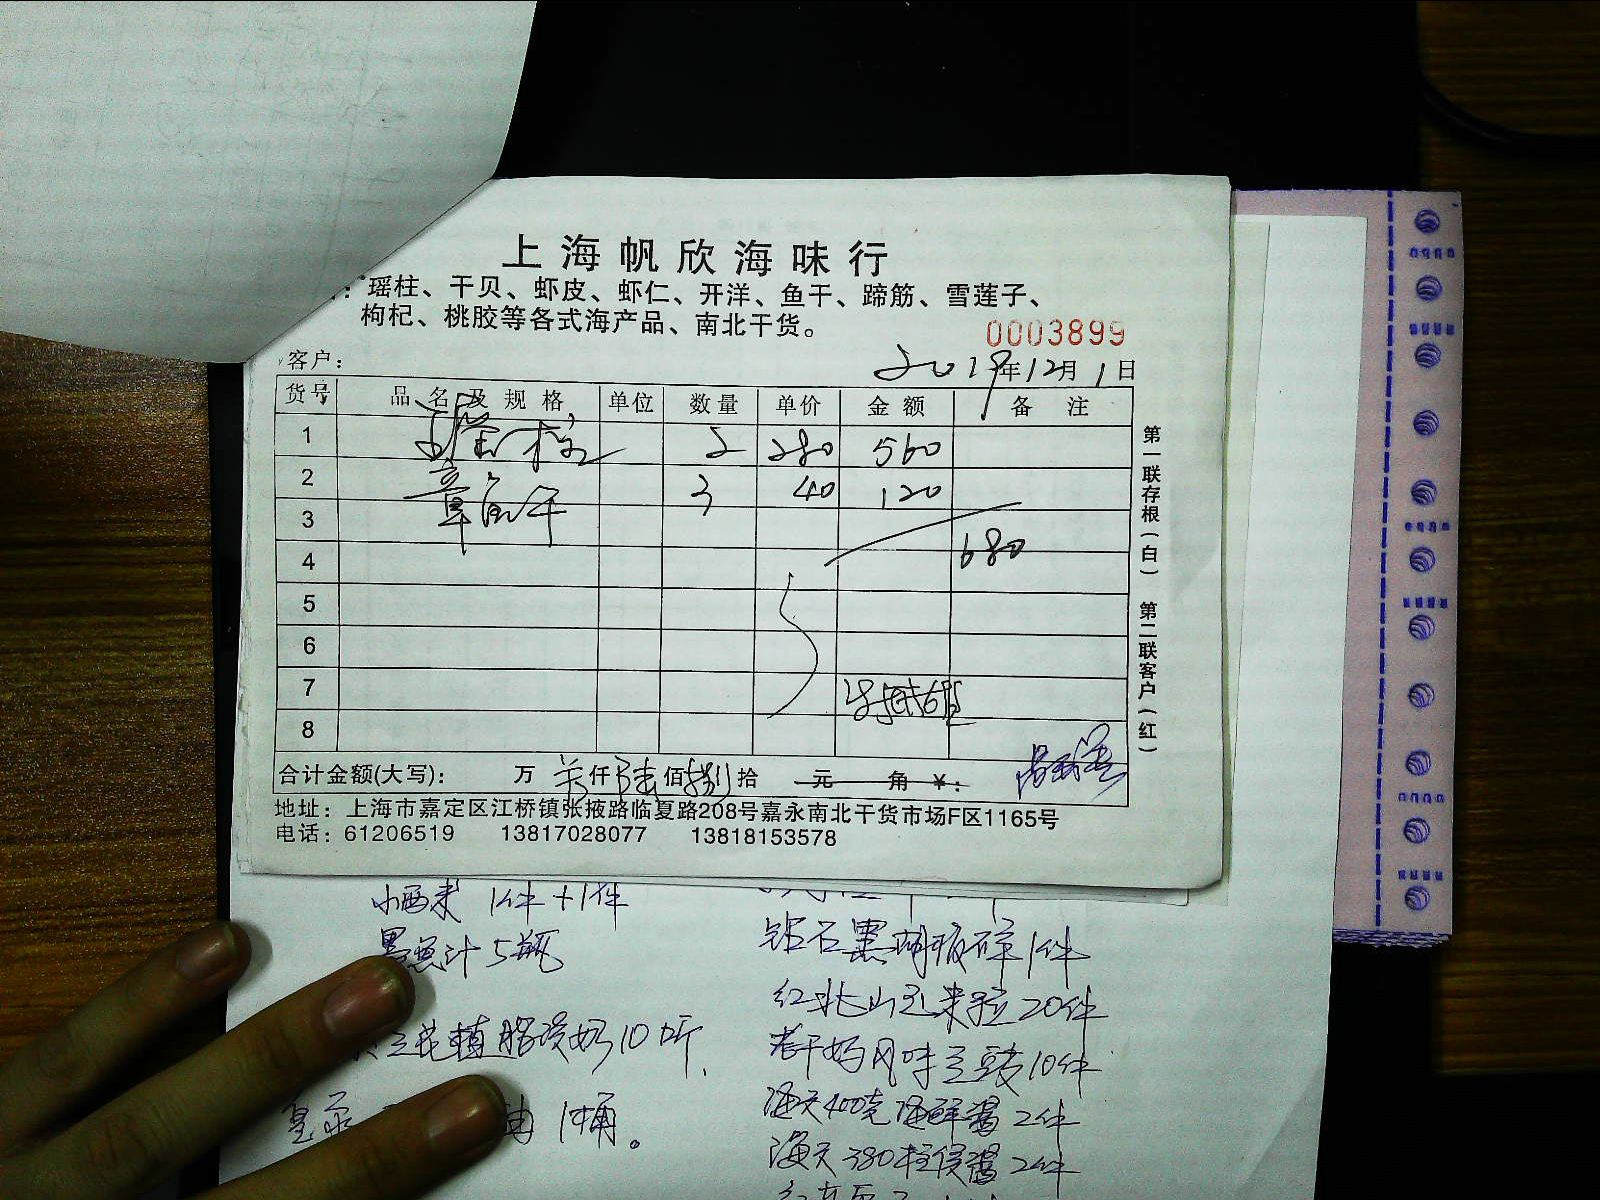 上海帆欣海味行
：瑶柱、干贝、虾皮、虾仁、开洋、鱼干、蹄筋、雪莲子、
枸杞、桃胶等各式海产品、南北干货。
0003899
客户：
2019年12月1日
货号 品名及规格 单位 数量 单价 金额 备注
1 2 280 560
2 章鱼干 3 40 120
3
680
4
5
6
7
8
合计金额(大写)： 万 仟陆佰捌拾 元 角 ￥：
地址：上海市嘉定区江桥镇张掖路临夏路208号嘉永南北干货市场F区1165号
电话：61206519 13817028077 13818153578
第一联存根(白) 第二联客户(红)
小西米 1件+1件
墨鱼汁 5瓶
三花植脂淡奶10听.
油 1桶。
钻石黑胡椒碎1件
红北山玉米粒20件
老干妈风味豆豉10件
海天400克海鲜酱2件
海天380柱侯酱2件